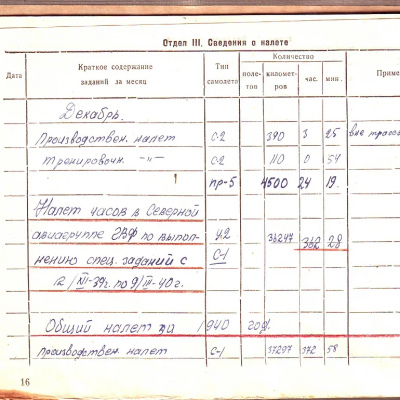 Отдел III. Сведения о налете
Дата Краткое содержание заданий за месяц Тип самолета Количество Приме
поле-тов километ-ров час. мин.
Декабрь.
Производствен. налет С-2 390 3 25 вне трассов
тренировочн. —"— С-2 110 0 54
пр-5 4500 24 19.
Налет часов в Северной
авиагруппе ГВФ по выпол- 36247 362 28
нению спец. заданий с С-1
12/XII-39г. по 9/III-40г.
Общий налет за 1940 год.
Производствен. налет С-1 37297 372 58
16